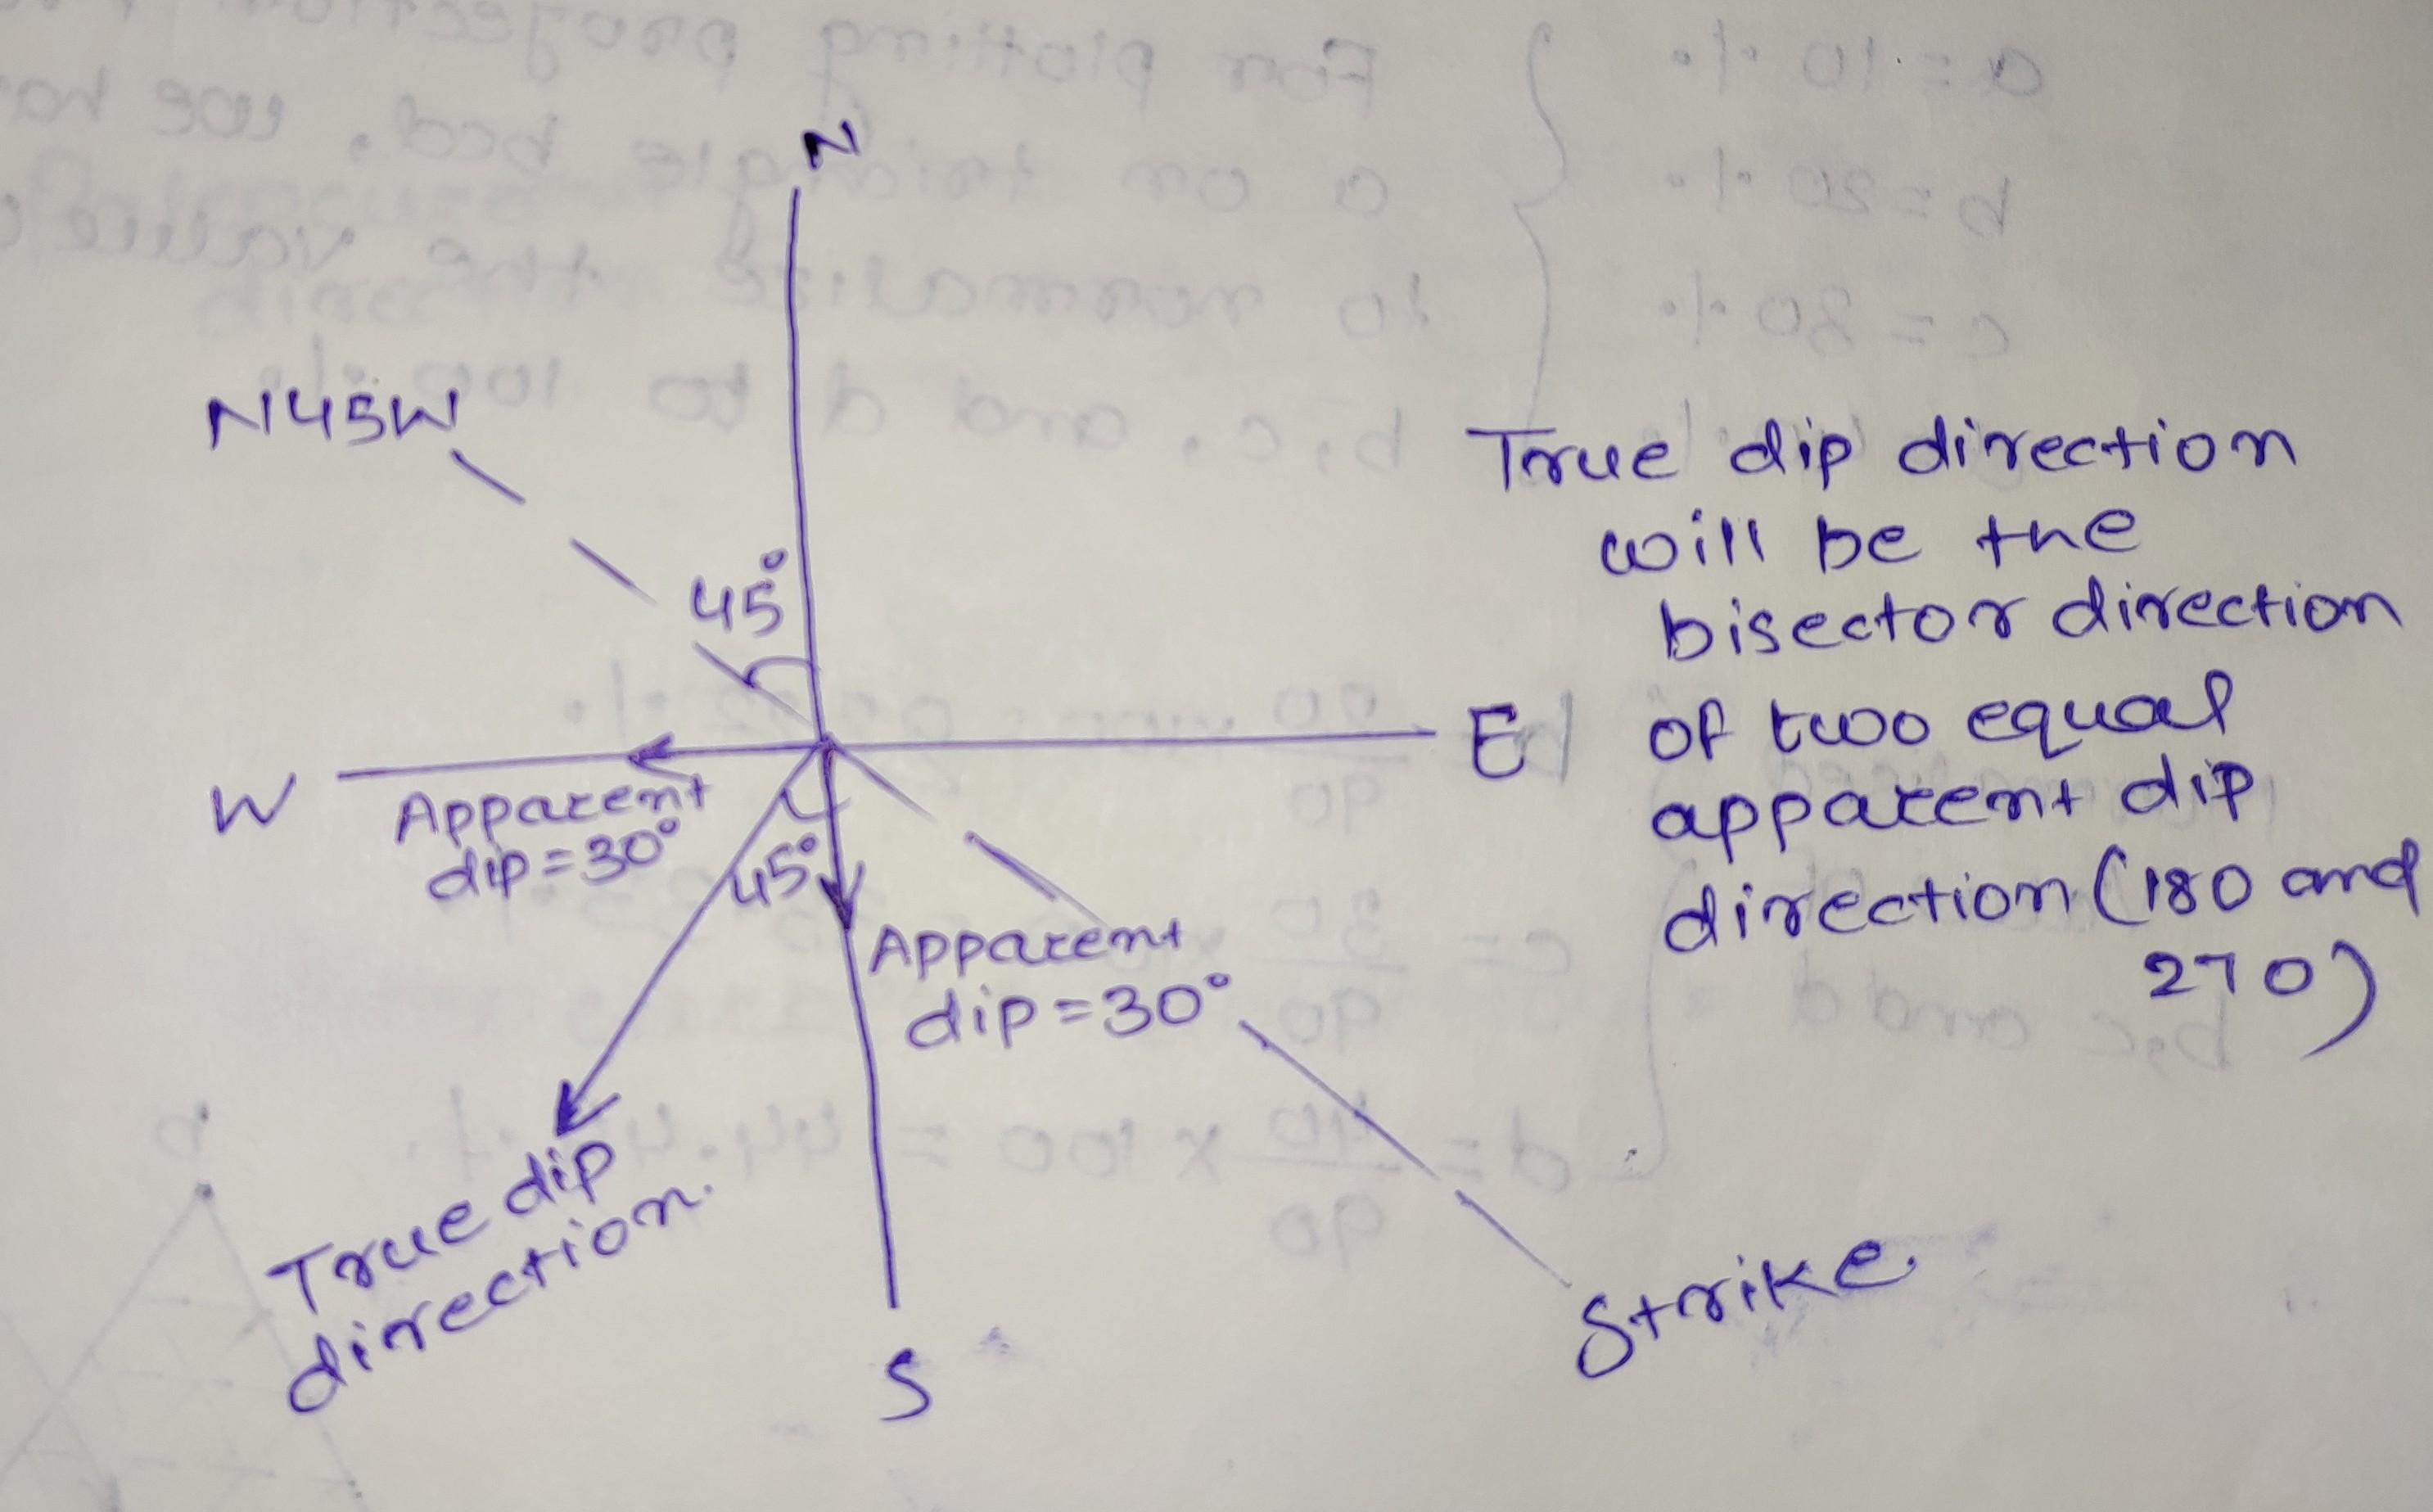 N
N45W
45°
W
E
Apparent
dip=30°
45°
Apparent
dip=30°
True dip
direction.
S
Strike.
True dip direction
will be the
bisector direction
of two equal
apparent dip
direction (180 and
270)